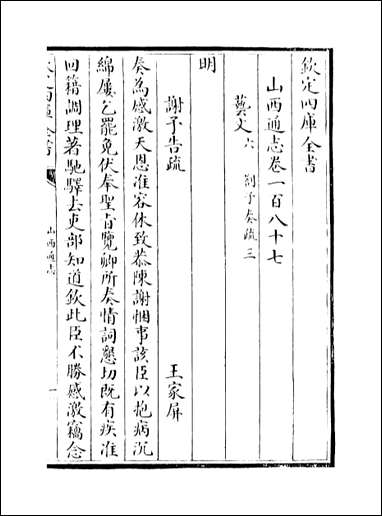 欽定四庫全書
山西通志卷一百八十七
藝文六 劄子奏疏三
明
謝予告疏 王家屏
奏為感激天恩准容休致恭陳謝悃事該臣以抱病沉
綿屢乞罷免伏奉聖旨覽卿所奏情詞懇切既有疾准
回籍調理著馳驛去吏部知道欽此臣不勝感激竊念
山西通志
一